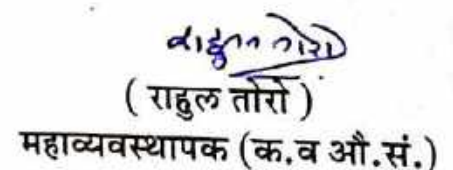 राहुल तोरो
( राहुल तोरो )
महाव्यवस्थापक (क.व औ.सं.)